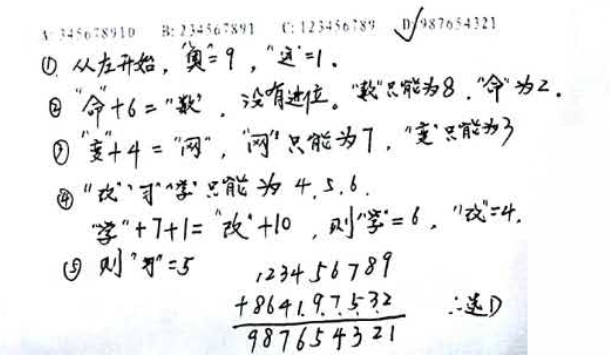 A: 345678910 B: 234567891 C: 123456789 D: 987654321
① 从左开始，"奥"=9，"这"=1．
② "命"+6="数"，没有进位。"数"只能为8，"命"为2．
③ "变"+4="网"，"网"只能为7，"变"只能为3
④ "改""习""学"只能为 4，5，6．
"学"+7+1="改"+10，则"学"=6，"改"=4．
⑤ 则"习"=5
123456789
+864197532
987654321
∴选D